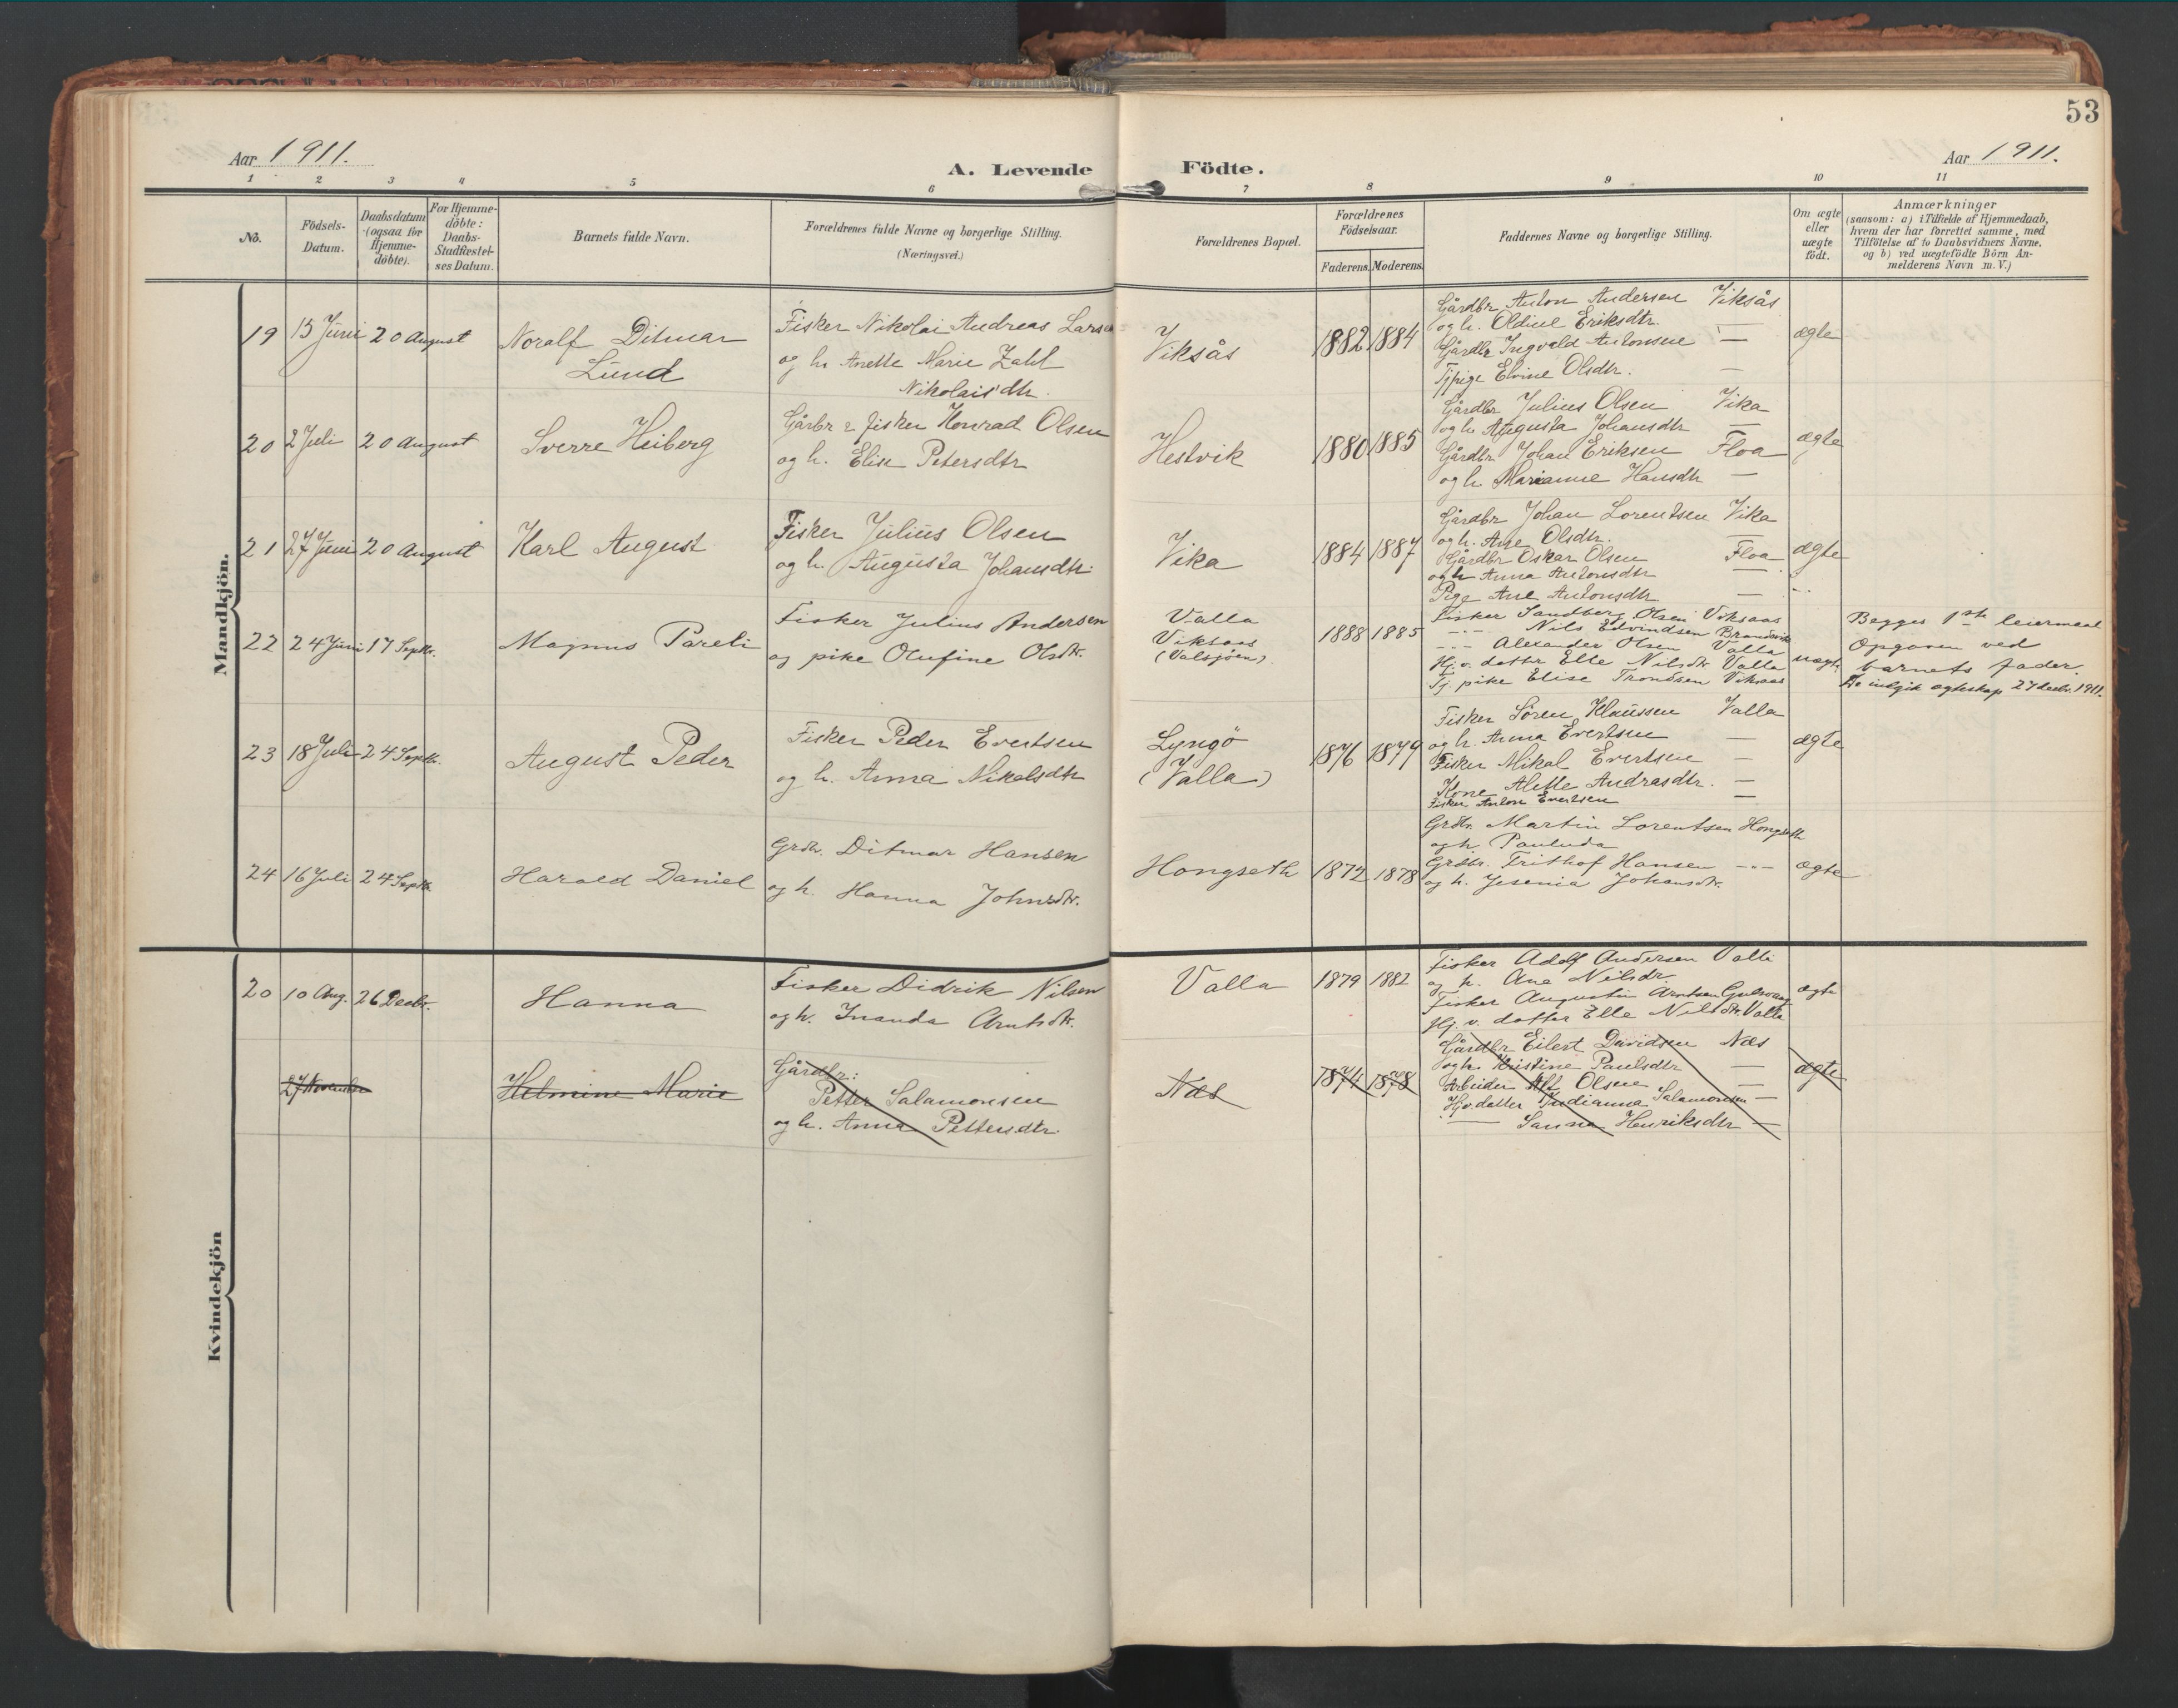 53
Aar 1911.
A. Levende Födte.
Aar 1911.
1 2 3 4 5 6 7 8 9 10 11
No.
Födsels-
Datum.
Daabsdatum
(ogsaa for
Hjemme-
döbte).
For Hjemme-
döbte:
Daabs-
Stadfæstel-
ses Datum.
Barnets fulde Navn.
Forældrenes fulde Navne og borgerlige Stilling.
(Næringsvei.)
Forældrenes Bopæl.
Forældrenes
Födselsaar.
Faderens. Moderens.
Faddernes Navne og borgerlige Stilling.
Om ægte
eller
uægte
födt.
Anmærkninger
(saasom: a) i Tilfælde af Hjemmedaab,
hvem der har forrettet samme, med
Tilföielse af to Daabsvidners Navne.
og b) ved uægtefödte Börn An-
melderens Navn m. V.)
Mandkjön.
19 15 Juni 20 august
Noralf Ditmar
Lund
Fisker Nikolai Andreas Larsen
og h. Anette Marie Zahl
Nikolaisdtr.
Viksås
1882 1884
Gårdbr Anton Andersen Viksås
og h. Oldine Eriksdtr. —
Gårdbr Ingvald Antonsen —
Tjpige Elvine Olsdtr. —
ægte
20 2 Juli 20 august
Sverre Heiberg
Gårbr & fisker Konrad Olsen
og h. Elise Petersdtr
Hestvik
1880 1885
Gårdbr Julius Olsen Vika
og h. Augusta Johansdtr —
Gårdbr Johan Eriksen Floa
og h. Marianne Hansdtr —
ægte
21 27 Juni 20 august
Karl August
Fisker Julius Olsen
og h. Augusta Johansdtr.
Vika
1884 1887
Gårdbr Johan Lorentsen Vika
og h. Ane Olsdtr. —
Gårdbr Oskar Olsen Floa
og h Anna Antonsdtr —
Pige Ane Antonsdtr —
ægte
22 24 Juni 17 Septbr.
Magnus Pareli
Fisker Julius Andersen
og pike Olufine Olsdtr.
Valla
Viksaas
(Valsjöen).
1888 1885
Fisker Sandberg Olsen Viksaas
-"- Nils Edvindsen Brandsvik
-"- Alexander Olsen Valla
Hj. v. datter Elle Nilsdtr Valla
Tj. pike Elise Trondsen Viksaas
uægte
Begges 1ste leiermaal
Opgaven ved
barnets fader.
De indgik ægteskap 27 decbr. 1911.
23 18 Juli 24 Septbr.
August Peder
Fisker Peder Evertsen
og h. Anna Nikolsdtr
Lyngö
(Valla)
1876 1879
Fisker Sören Klaussen Valla
og h. Anna Evertsen —
Fisker Mikal Evertsen —
Kone Alette Andrasdtr. —
Fisker Anton Evertsen —
ægte
24 16 Juli 24 Septbr
Harald Daniel
Grdbr. Ditmar Hansen
og h. Hanna Johnsdtr.
Hongseth
1872 1878
Grdbr. Martin Lorentsen Hongseth
og h. Paulida
Grdbr. Frithof Hansen -"-
og h. Jesenia Johansdtr.
ægte
Kvindekjön
20 10 Aug. 26 Decbr.
Hanna
Fisker Didrik Nilsen
og h. Inanda Arntsdtr.
Valla
1879 1882
Fisker Adolf Andersen Valla
og h. Ane Nilsdtr
Fisker Augustin Arntsen
Hj. v. datter Elle Nilsdtr. Valla
ægte
27 November
Helmine Marie
Gårdbr:
Petter Salamonsen
og h. Anna Pettersdtr.
Næs
1874 1878
Gårdbr Eilert Davidsen Næs
og h. Kristine Paulsdtr —
Arbeider Alf Olsen —
Hjv. datter Judianna Salamonsen —
— Sanna Henriksdtr —
ægte